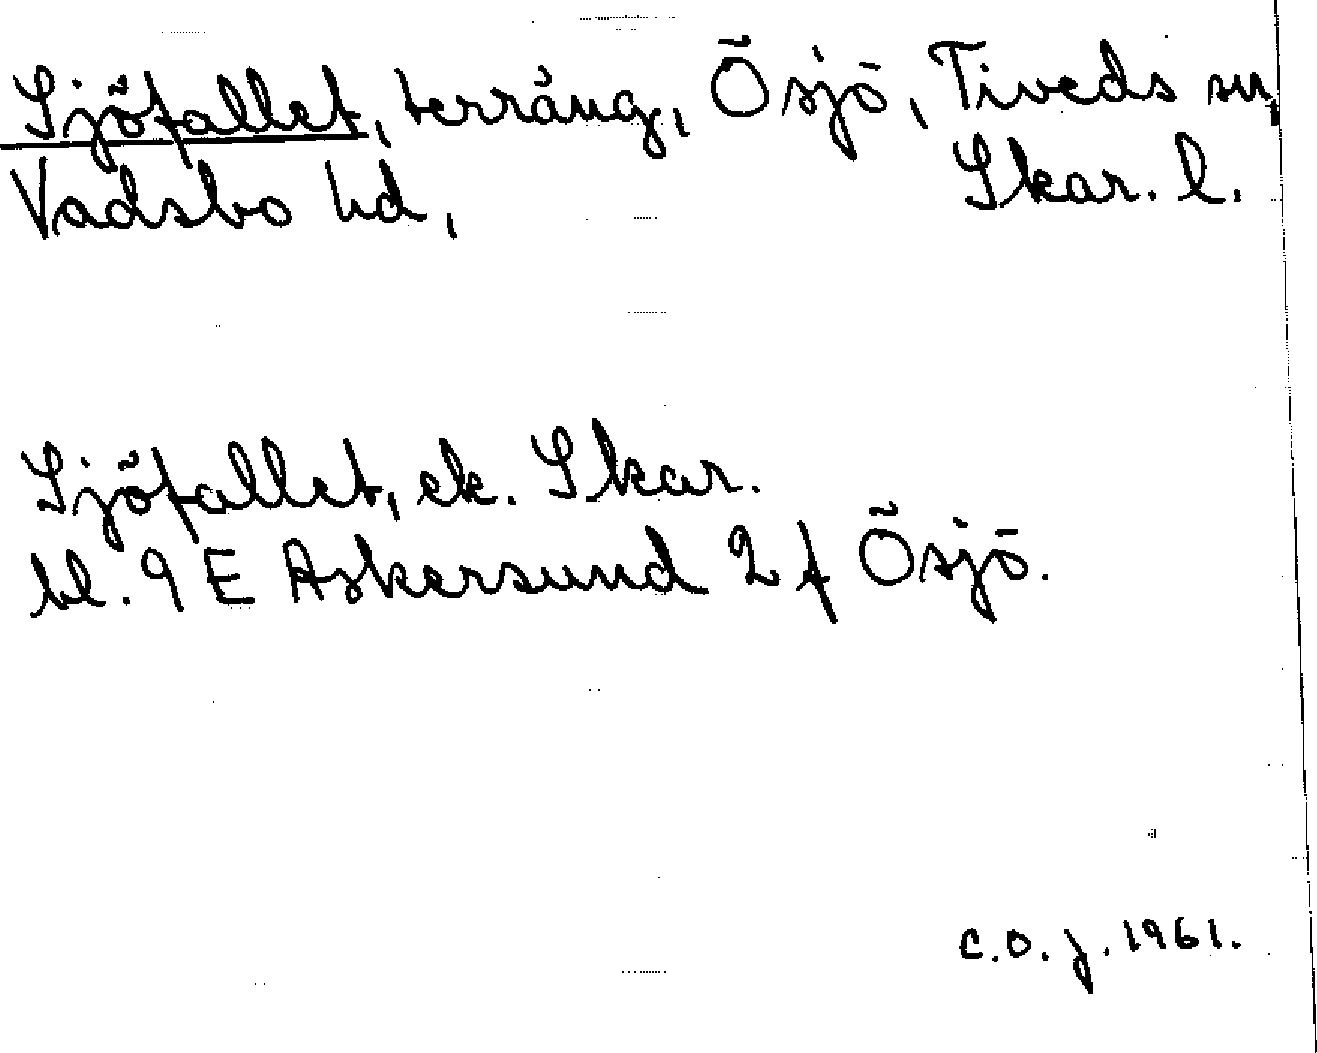 Sjöfallet, terräng, Ösjö, Tiveds sn,
Vadsbo hd, Skar. l.
Sjöfallet, ek. Skar.
bl. 9 E Askersund 2 f Ösjö.
C.O.J. 1961.